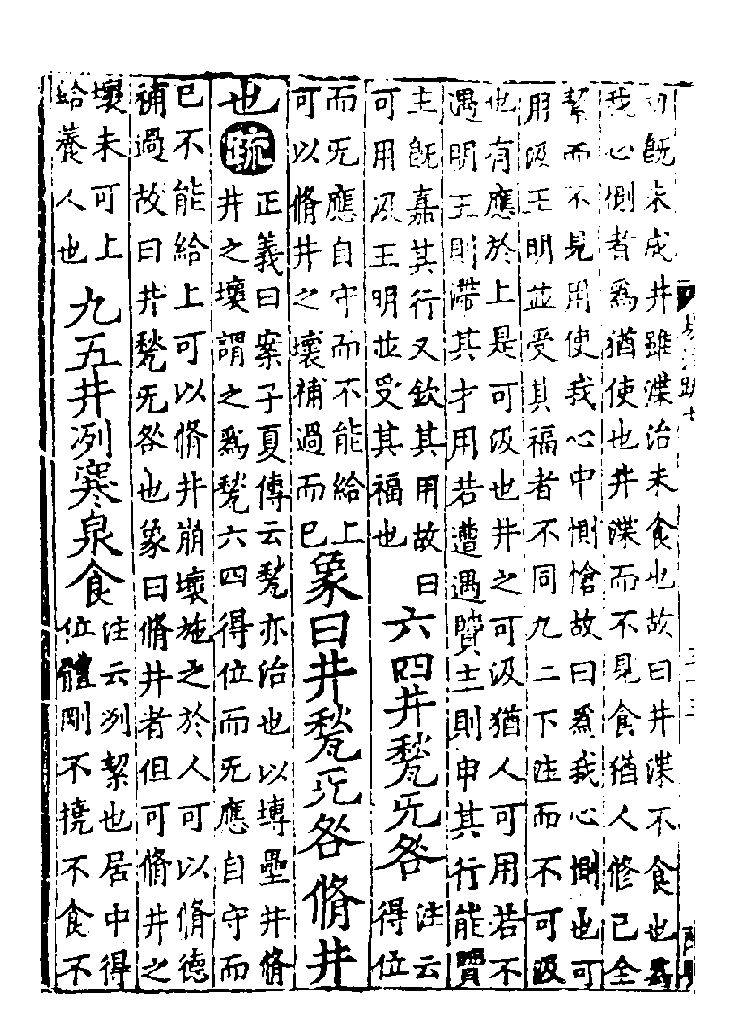 既未成井雖渫治未食也故曰井渫不食也爲
我心惻者爲猶使也井渫而不見食猶人修己全
絜而不見用使我心中惻愴故曰爲我心惻也可
用汲王明並受其福者不同九二下注而不可汲
也有應於上是可汲也井之可汲猶人可用若不
遇明王則滯其才用若遭遇賢主則申其行能賢
主既嘉其行又欽其用故曰
可用汲王明並受其福也
六四井甃无咎
注云
得位
而无應自守而不能給上
可以脩井之壞補過而已
象曰井甃无咎脩井
也疏
正義曰案子夏傳云甃亦治也以塼壘井脩
井之壞謂之爲甃六四得位而无應自守而
已不能給上可以脩井崩壞施之於人可以脩德
補過故曰井甃无咎也象曰脩井者但可脩井之
壞未可上
給養人也
九五井冽寒泉食
注云冽絜也居中得
位體剛不撓不食不